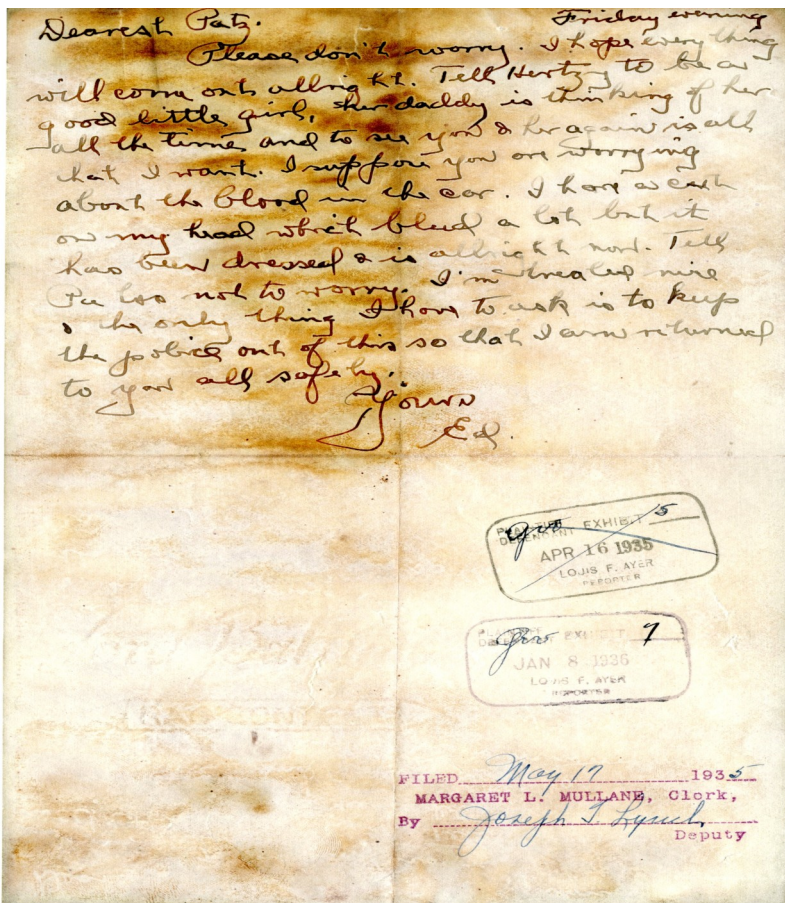 Friday evening
Dearest Patz.
Please don't worry. I hope everything
will come out allright. Tell Hertzy to be a
good little girl, her daddy is thinking of her
all the time and to see you & her again is all
that I want. I suppose you are worrying
about the blood in the car. I have a cut
on my head which bled a lot but it
has been dressed & is allright now. Tell
Pa too not to worry. I'm treated nice
& the only thing I have to ask is to keep
the police out of this so that I am returned
to you all safely.
Yours
Ed.
PLAINTIFF
DEFENDENT EXHIBIT 15
Gov
APR 16 1935
LOUIS F. AYER
REPORTER
EXHIBIT 7
Gov
JAN 8 1936
LOUIS F. AYER
REPORTER
FILED May 17 1935
MARGARET L. MULLANE, Clerk,
By Joseph T. Lynch
Deputy